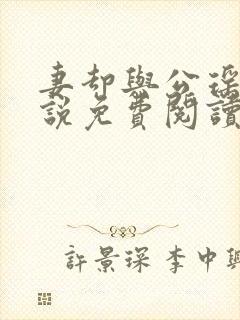 妻却與公
說免費閱讀
許景琛 李中興